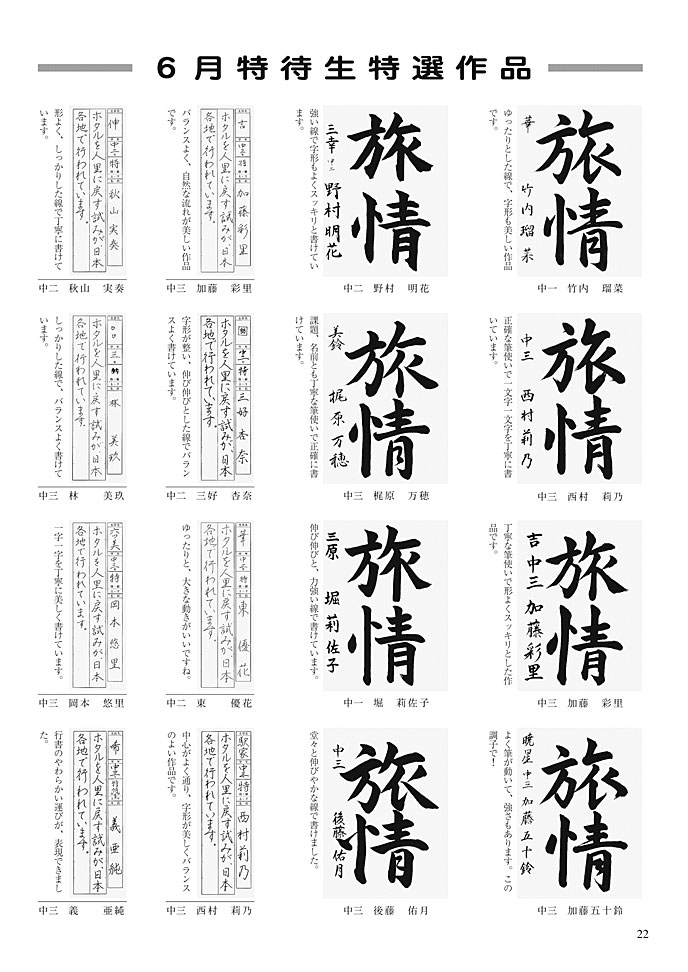 6月特待生特選作品
旅情
華 竹内瑠菜
ゆったりとした線で、字形も美しい作品
です。
中一 竹内 瑠菜
旅情
三幸 中二 野村明花
強い線で字形もよくスッキリと書けてい
ます。
中二 野村 明花
吉 中三 特 加藤彩里
ホタルを人里に戻す試みが、日本
各地で行われています。
バランスよく、自然な流れが美しい作品
です。
中三 加藤 彩里
仲 中二 特 秋山実奏
ホタルを人里に戻す試みが、日本
各地で行われています。
形よく、しっかりした線で丁寧に書けて
います。
中二 秋山 実奏
旅情
中三 西村莉乃
正確な筆使いで一文字一文字を丁寧に書
いています。
中三 西村 莉乃
旅情
美鈴 梶原万穂
課題、名前とも丁寧な筆使いで正確に書
けています。
中三 梶原 万穂
中二 特 三好杏奈
ホタルを人里に戻す試みが、日本
各地で行われています。
字形が整い、伸び伸びとした線でバラン
スよく書けています。
中二 三好 杏奈
三 特 林美玖
ホタルを人里に戻す試みが、日本
各地で行われています。
しっかりした線で、バランスよく書けて
います。
中三 林 美玖
旅情
吉 中三 加藤彩里
丁寧な筆使いで形よくスッキリとした作
品です。
中三 加藤 彩里
旅情
三原 堀莉佐子
伸び伸びと、力強い線で書けています。
中一 堀 莉佐子
華 中二 特 東優花
ホタルを人里に戻す試みが、日本
各地で行われています。
ゆったりと、大きな動きがいいですね。
中二 東 優花
中三 特 岡本悠里
ホタルを人里に戻す試みが、日本
各地で行われています。
一字一字を丁寧に美しく書けています。
中三 岡本 悠里
旅情
暁星 中三 加藤五十鈴
よく筆が動いて、強さもあります。この
調子で!
中三 加藤五十鈴
旅情
中三 後藤佑月
堂々と伸びやかな線で書けました。
中三 後藤 佑月
駅家 中三 特 西村莉乃
ホタルを人里に戻す試みが、日本
各地で行われています。
中心がよく通り、字形が美しくバランス
のよい作品です。
中三 西村 莉乃
希 中三 特 義亜純
ホタルを人里に戻す試みが、日本
各地で行われています。
行書のやわらかい運びが、表現できまし
た。
中三 義 亜純
22